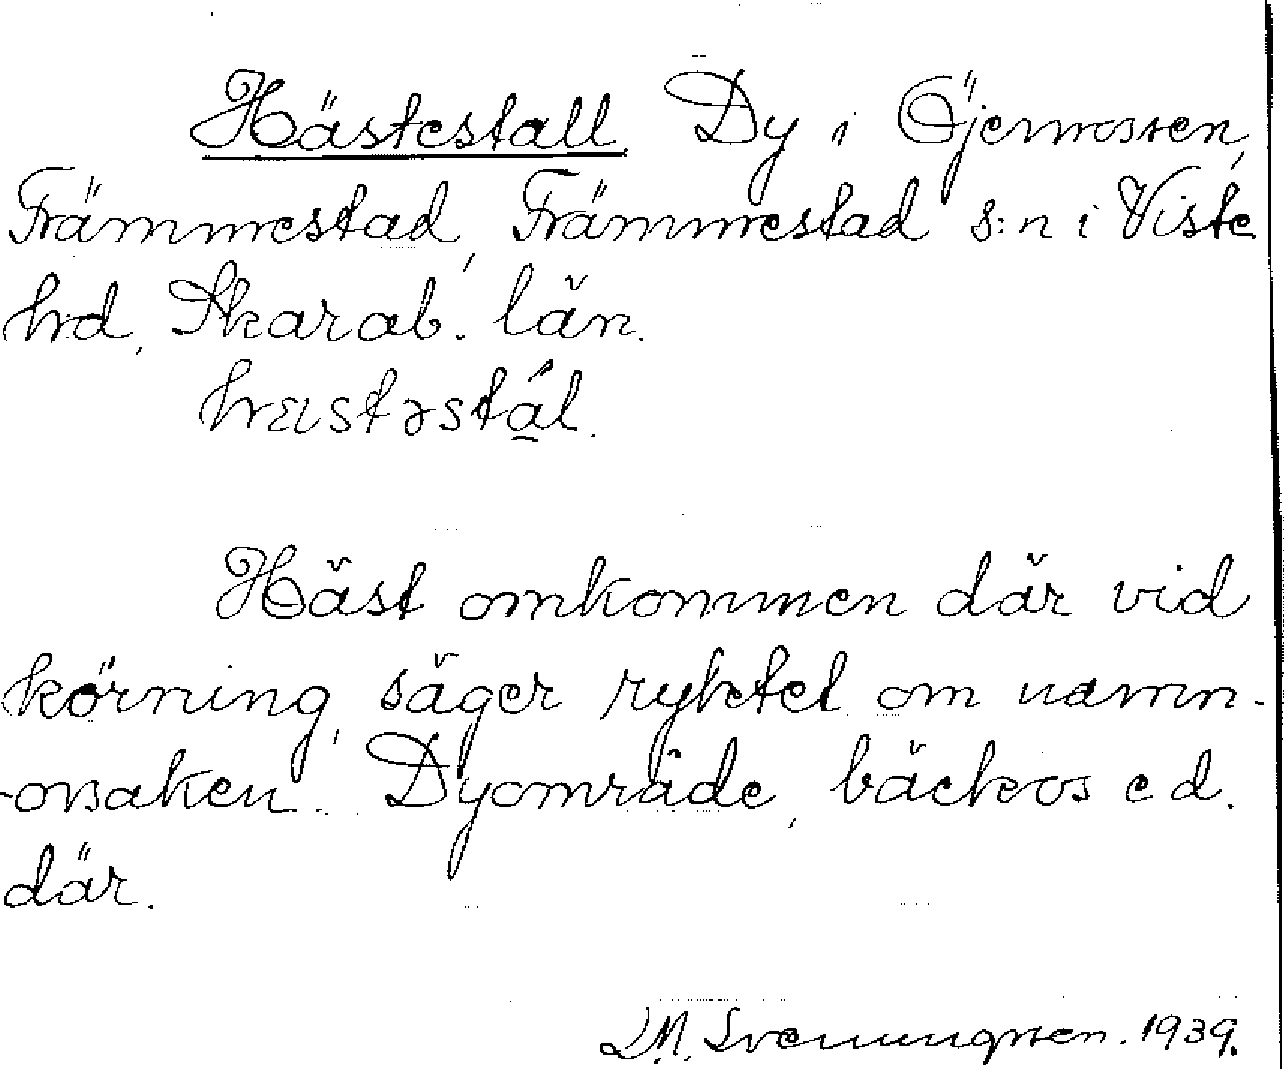 Hästestall. Dy i Öjemossen,
Främmestad, Främmestad s:n i Viste
hd, Skarab. län.
hæstəstál.
Häst omkommen där vid
körning, säger ryktet om namn-
-orsaken. Dyområde, bäckos e d.
där.
D.M. Svenungsson. 1939.